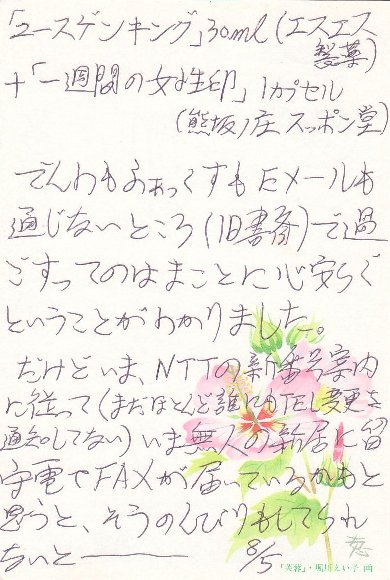 「ユースゲンキング」30ml(エスエス
製薬)
+「一週間の女性印」1カプセル
(熊坂ノ庄 スッポン堂)
でんわもふぁっくすもEメールも
通じないところ(旧書斎)で過
ごすってのはまことに心安らぐ
ということがわかりました。
だけどいま、NTTの新番号案内
に従って(まだほとんど誰にもTEL変更を
通知してない)いま無人の新居に留
守電やFAXが届いているかもと
思うと、そうのんびりもしてられ
ないと
8/5
「芙蓉」・堀川えい子 画